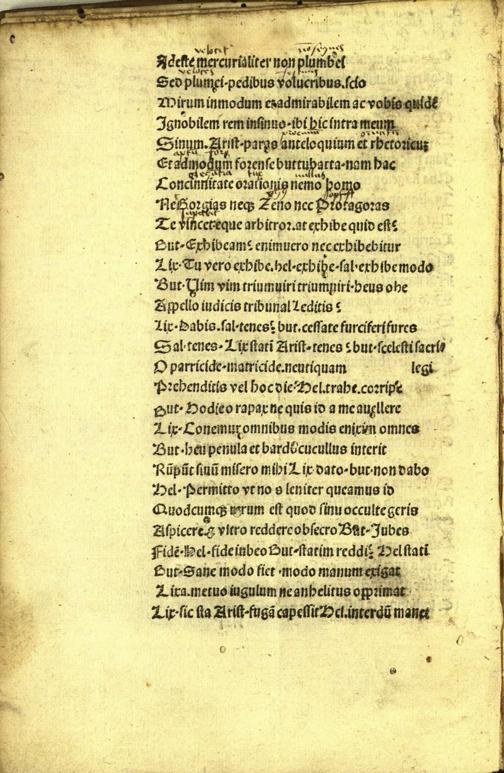 Adeste mercurialiter non plumbei
Sed plumei·pedibus volucribus.scio
Mirum inmodum et admirabilem ac vobis quidē
Ignobilem rem insinuo·ibi hic intra meum
Sinum.Arist·paras anteloquium et rhetoricus
Et admodum forense buttubatta·nam hac
Concinnitate orationis nemo homo
Ne Gorgias neqꝫ Zeno nec Protagoras
Te vincet·eque arbitror.at exhibe quid est
But·Exhibeam enimuero nec exhibebitur
Lix·Tu vero exhibe.hel·exhibe·sal·exhibe modo
But·Uim vim triumuiri triumuiri·heus ohe
Appello iudicis tribunal Leditis
Lix·dabis.sal·tenes but.cessate furciferi fures
Sal·tenes·Lix stati Arist·tenes but·scelesti sacri
O parricide·matricide.neutiquam legi
Prehenditis vel hoc die Hel.trahe.corripe
But·Hodie o rapax ne quis id a me auellere
Lix·Conemur omnibus modis enixim omnes
But·heu penula et bardocucullus interit
Rūpūt sinū misero mihi Lix dato·but·non dabo
Hel·Permitto vt nos leniter queamus id
Quodcumqꝫ verum est quod sinu occulte geris
Aspicere vltro reddere obsecro But·Jubes
Fidē·Hel·fide iubeo But·statim reddis Hel stati
But·Sane modo fiet·modo manum exigat
Lixa.metuo iugulum ne anhelitus opprimat
Lix·sic sta Arist·fugā capessit Hel.interdū manet